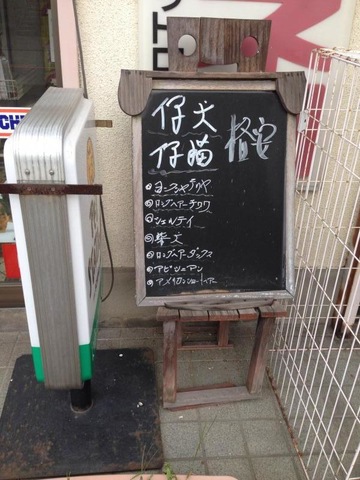 仔犬
仔猫 格安
ヨークシャテリヤ
ロングヘアーチワワ
シェルティ
柴犬
ロングヘアーダックス
アビシニアン
アメリカンショートヘアー
CHE